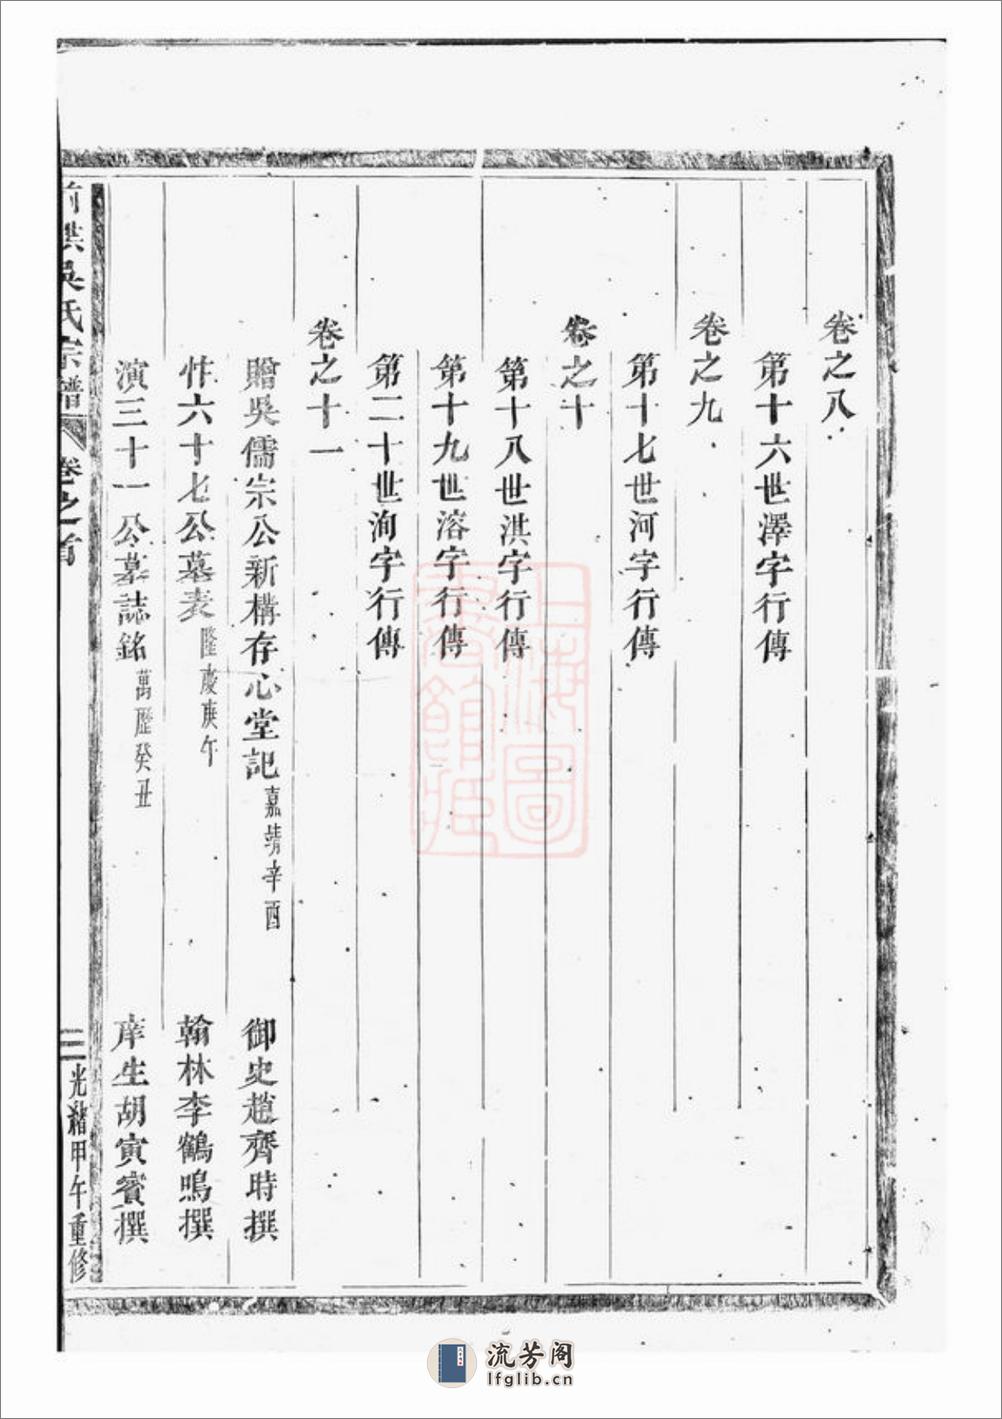 卷之八
第十六世澤字行傳
卷之九
第十七世河字行傳
卷之十
第十八世淇字行傳
第十九世溶字行傳
第二十世洵字行傳
卷之十一
贈吳儒宗公新構存心堂記嘉靖辛酉 御史趙齊時撰
怍六十七公墓表隆慶庚午 翰林李鶴鳴撰
演三十一公墓誌銘萬歷癸丑 庠生胡寅賓撰
吳氏宗譜 卷之首 二 光緒甲午重修
上海圖書館藏
流芳阁
lfglib.cn